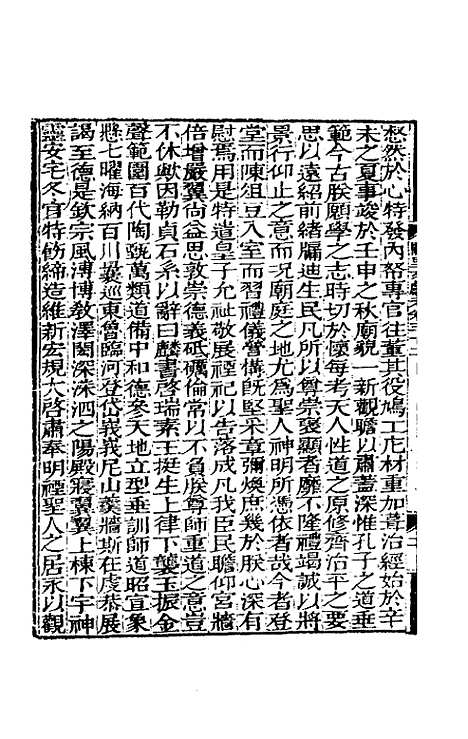 惄然於心特發內帑專官往董其役鳩工庀材重加葺治經始於辛
未之夏事竣於壬申之秋廟貌一新觀瞻以肅蓋深惟孔子之道垂
範今古朕願學之志時切於懷每考天人性道之原修齊治平之要
思以遠紹前緒牖迪生民凡所以尊崇褒顯者靡不隆禮竭誠以將
景行仰止之意而況廟庭之地尤為聖人神明所憑依者哉今者登
堂而陳俎豆入室而習禮儀營構旣堅采章彌煥庶幾於朕心深有
慰焉用是特遣皇子允祉敬展禋祀以告落成凡我臣民瞻仰宮牆
倍增嚴翼尚益思敦崇德義砥礪倫常以不負朕尊師重道之意豈
不休歟因勒貞石系以辭曰麟書啓瑞素王挺生上律下襲玉振金
聲範圍百代陶甄萬類道備中和德參天地立型垂訓師道昭宣象
懸七曜海納百川曩巡東魯臨河登岱峩峩尼山羹牆斯在虔恭展
謁至德是欽宗風溥博敎澤闊深洙泗之陽殿寢翼翼上棟下宇神
靈安宅冬官特飭締造維新宏規大啓肅奉明禋聖人之居永以觀